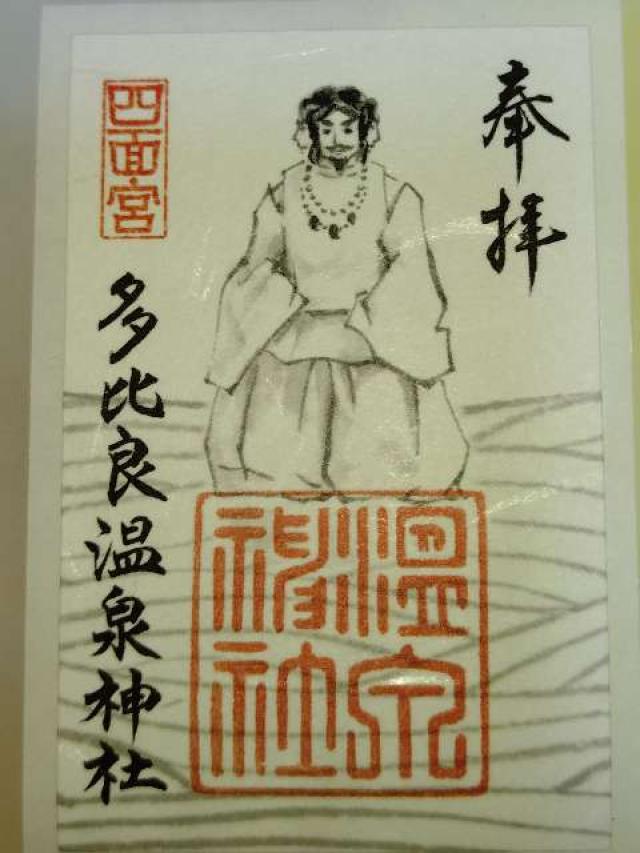 奉拝
四面宮
多比良温泉神社
温泉
神社